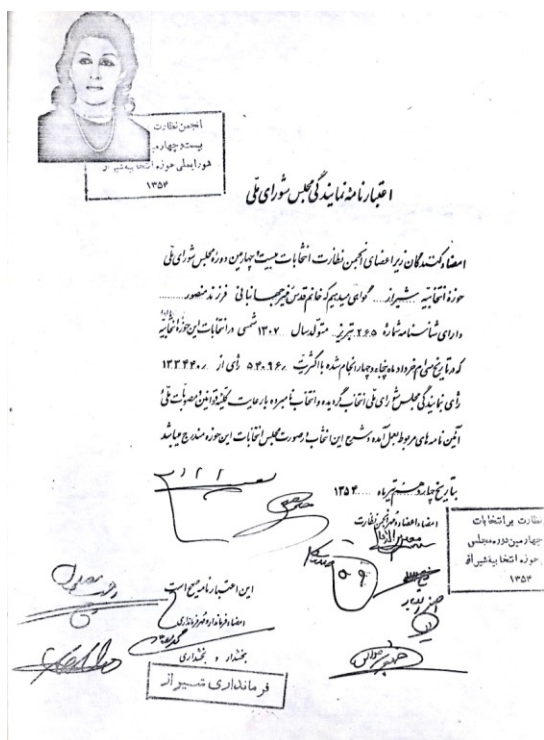 انجمن نظارت
بیست و چهارمین
شورایملی حوزه انتخابیه شیراز
۱۳۵۴
اعتبارنامه نمایندگی مجلس شورای ملی
امضاء کنندگان زیر اعضای انجمن نظارت انتخابات بیست و چهارمین دوره مجلس شورای ملی
حوزه انتخابیه شیراز گواهی میدهیم که خانم قدس نیر جهانبانی فرزند منصور
دارای شناسنامه شماره ۲۶۵ تبریز متولد سال ۱۳۰۷ شمسی در انتخابات این حوزه انتخابیه
که در تاریخ سی ام خرداد ماه پنجاه و چهار انجام شده با اکثریت ۵۴۰۹۶ رأی از ۱۳۳۴۴۰
رأی نمایندگی مجلس شورای ملی انتخاب گردیده و انتخاب نامبرده با رعایت کلیه قوانین و مصوبات ملی و
آئین نامه های مربوط بعمل آمده و شرح این انتخاب در صورت مجلس انتخابات این حوزه مندرج میباشد
بتاریخ چهاردهم تیرماه ۱۳۵۴
امضاء اعضاء و مهر انجمن نظارت
نظارت بر انتخابات
چهارمین دوره مجلس
حوزه انتخابیه شیراز
۱۳۵۴
این اعتبارنامه صحیح است
امضاء فرماندار و مهر فرمانداری
بخشدار و بخشداری
فرمانداری شیراز